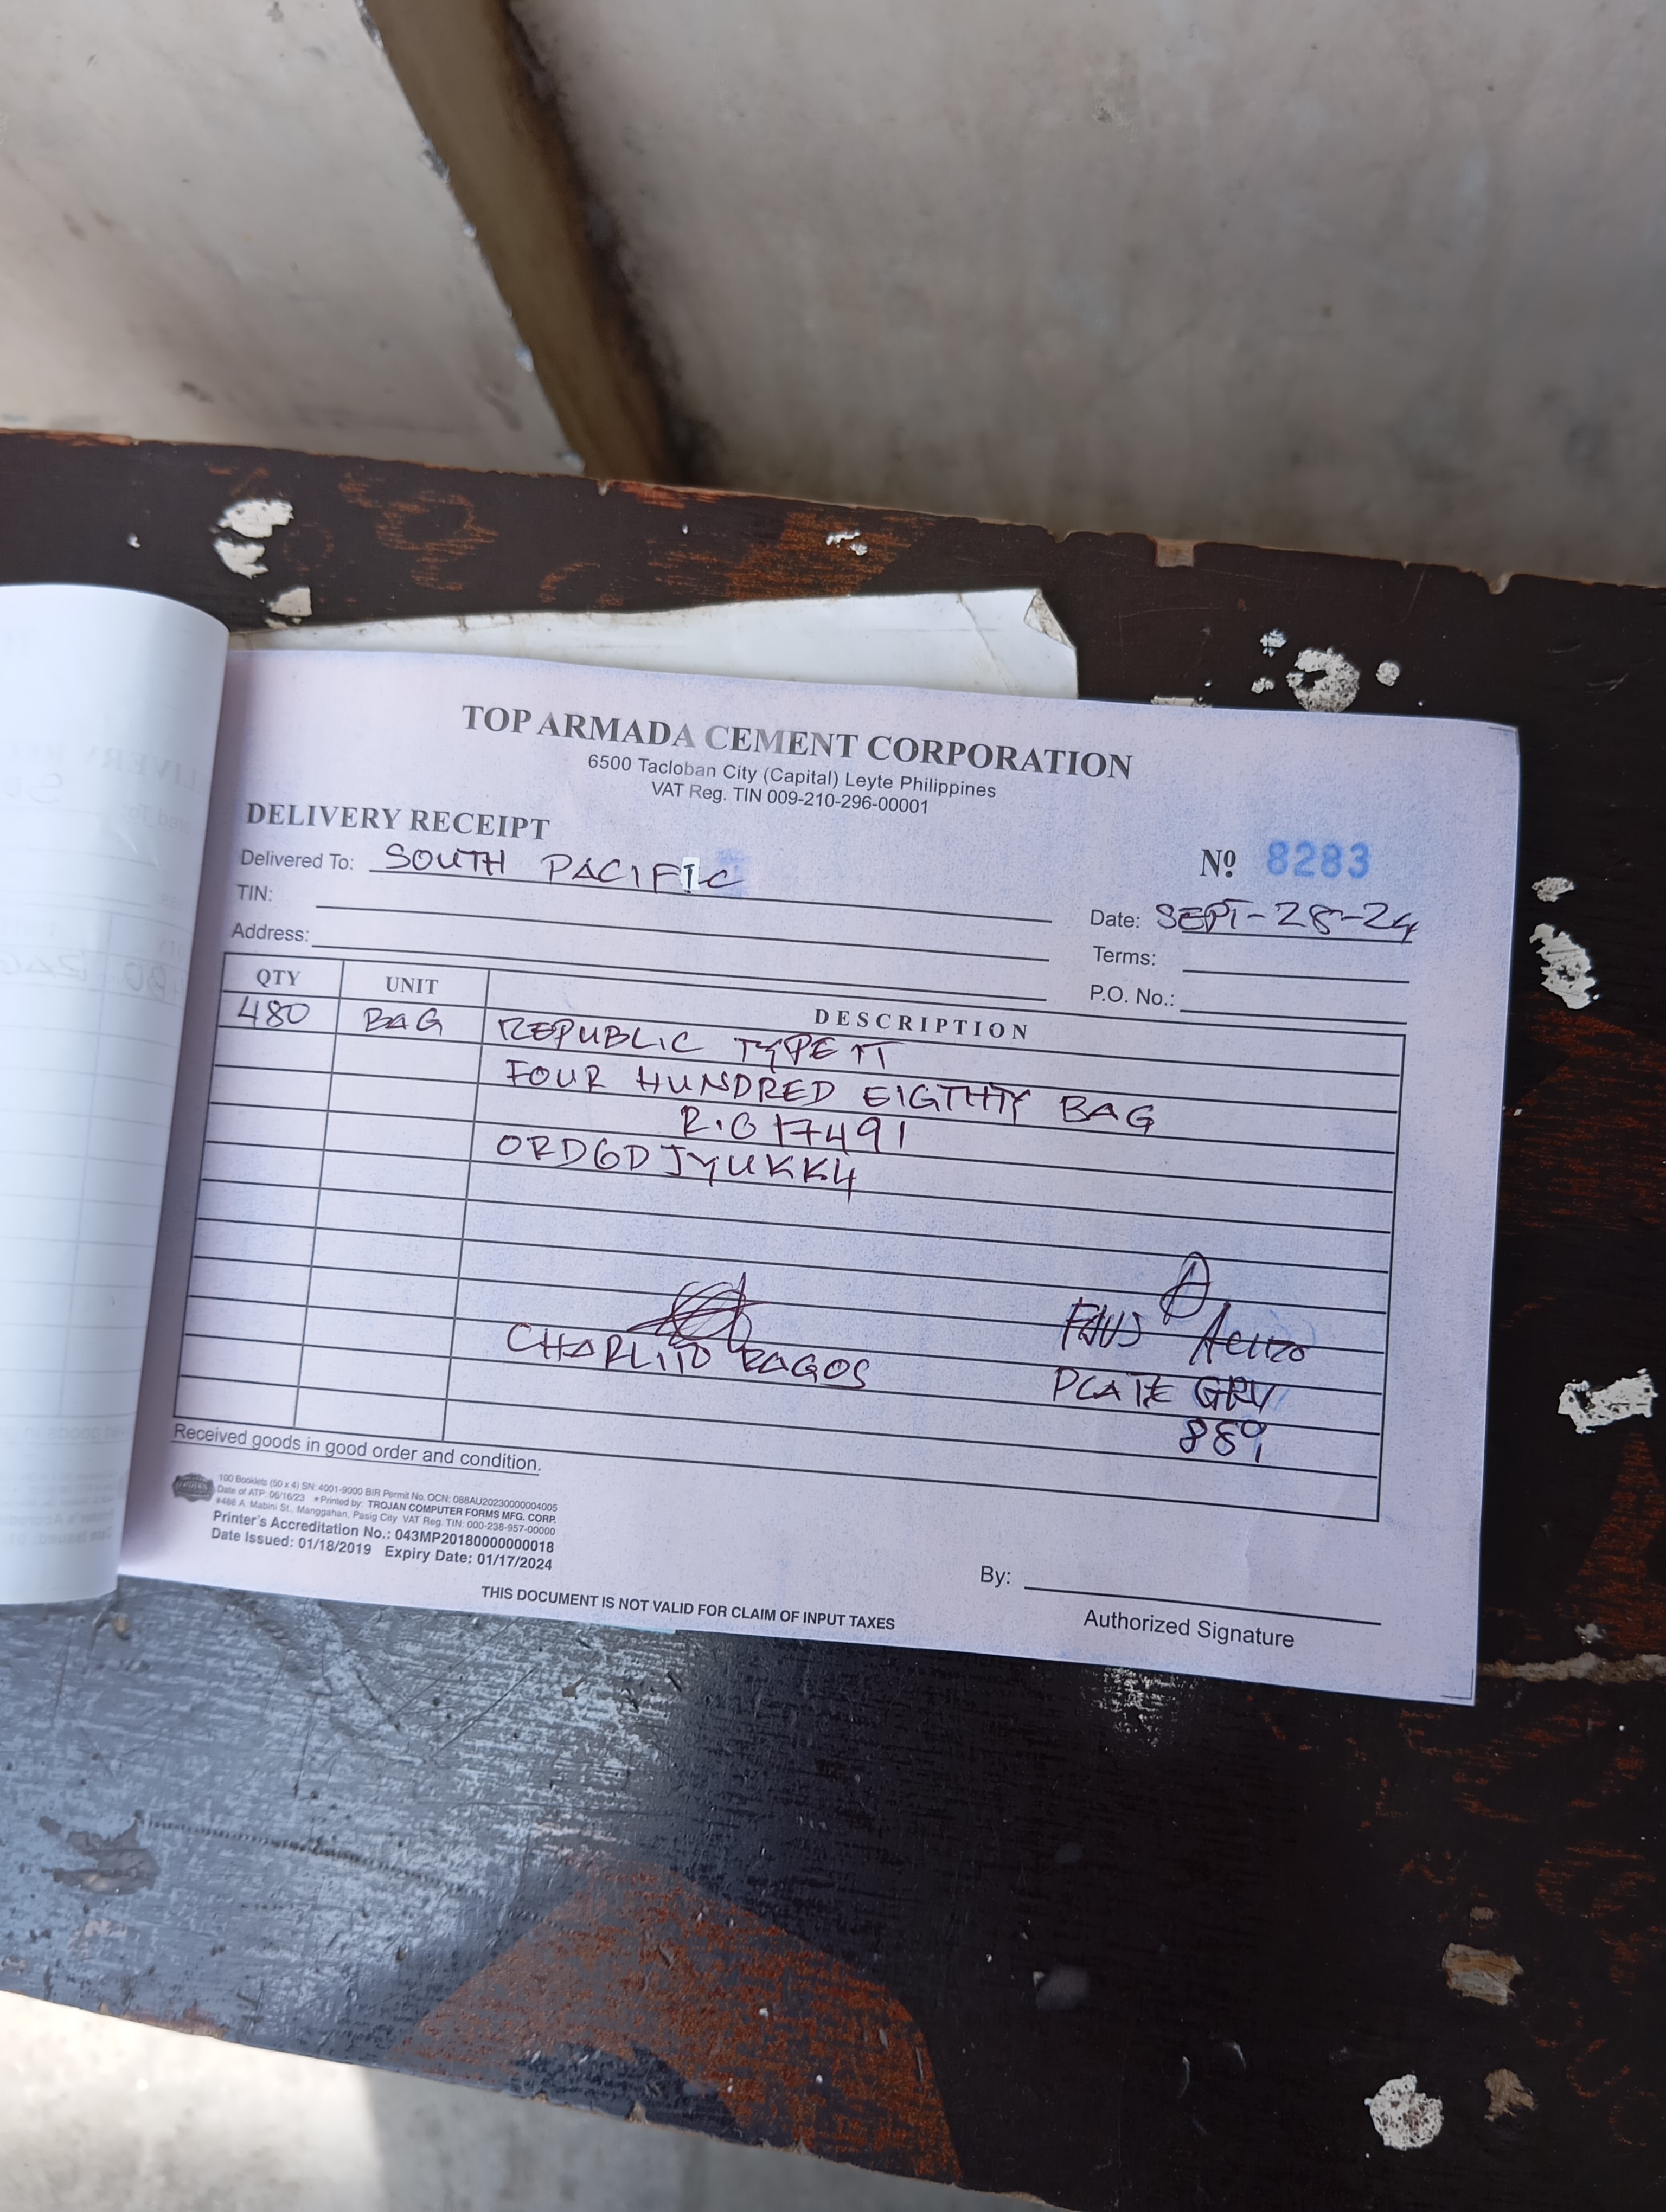 TOP ARMADA CEMENT CORPORATION
6500 Tacloban City (Capital) Leyte Philippines
VAT Reg. TIN 009-210-296-00001
DELIVERY RECEIPT
Nº 8283
Delivered To: SOUTH PACIFIC
TIN:
Date: SEPT-28-24
Address:
Terms:
P.O. No.:
QTY UNIT DESCRIPTION
480 BAG REPUBLIC TYPE 1T
FOUR HUNDRED EIGTHTY BAG
R.O 17491
ORDGDJYUKK4
CHARLITO RAGOS
PLATE GRV
889
Received goods in good order and condition.
100 Booklets (50 x 4) SN: 4001-9000 BIR Permit No. OCN: 088AU20230000004005
Date of ATP: 06/16/23 *Printed by: TROJAN COMPUTER FORMS MFG. CORP.
#486 A. Mabini St., Manggahan, Pasig City VAT Reg. TIN: 000-238-957-00000
Printer's Accreditation No.: 043MP20180000000018
Date Issued: 01/18/2019 Expiry Date: 01/17/2024
THIS DOCUMENT IS NOT VALID FOR CLAIM OF INPUT TAXES
By:
Authorized Signature